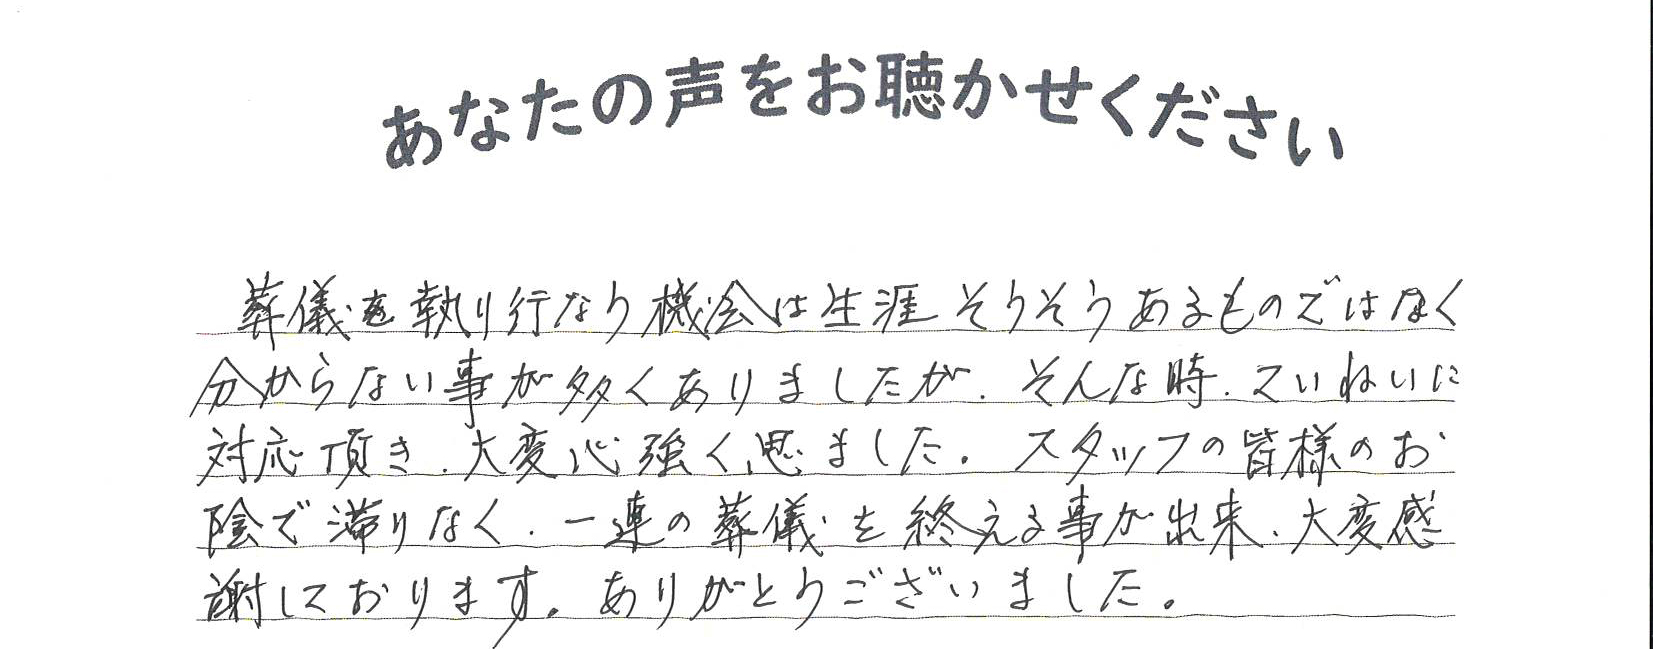 あなたの声をお聴かせください
葬儀を執り行なう機会は生涯そうそうあるものではなく
分からない事が多くありましたが、そんな時、ていねいに
対応頂き、大変心強く思ました。スタッフの皆様のお
陰で滞りなく、一連の葬儀を終える事が出来、大変感
謝しております。ありがとうございました。